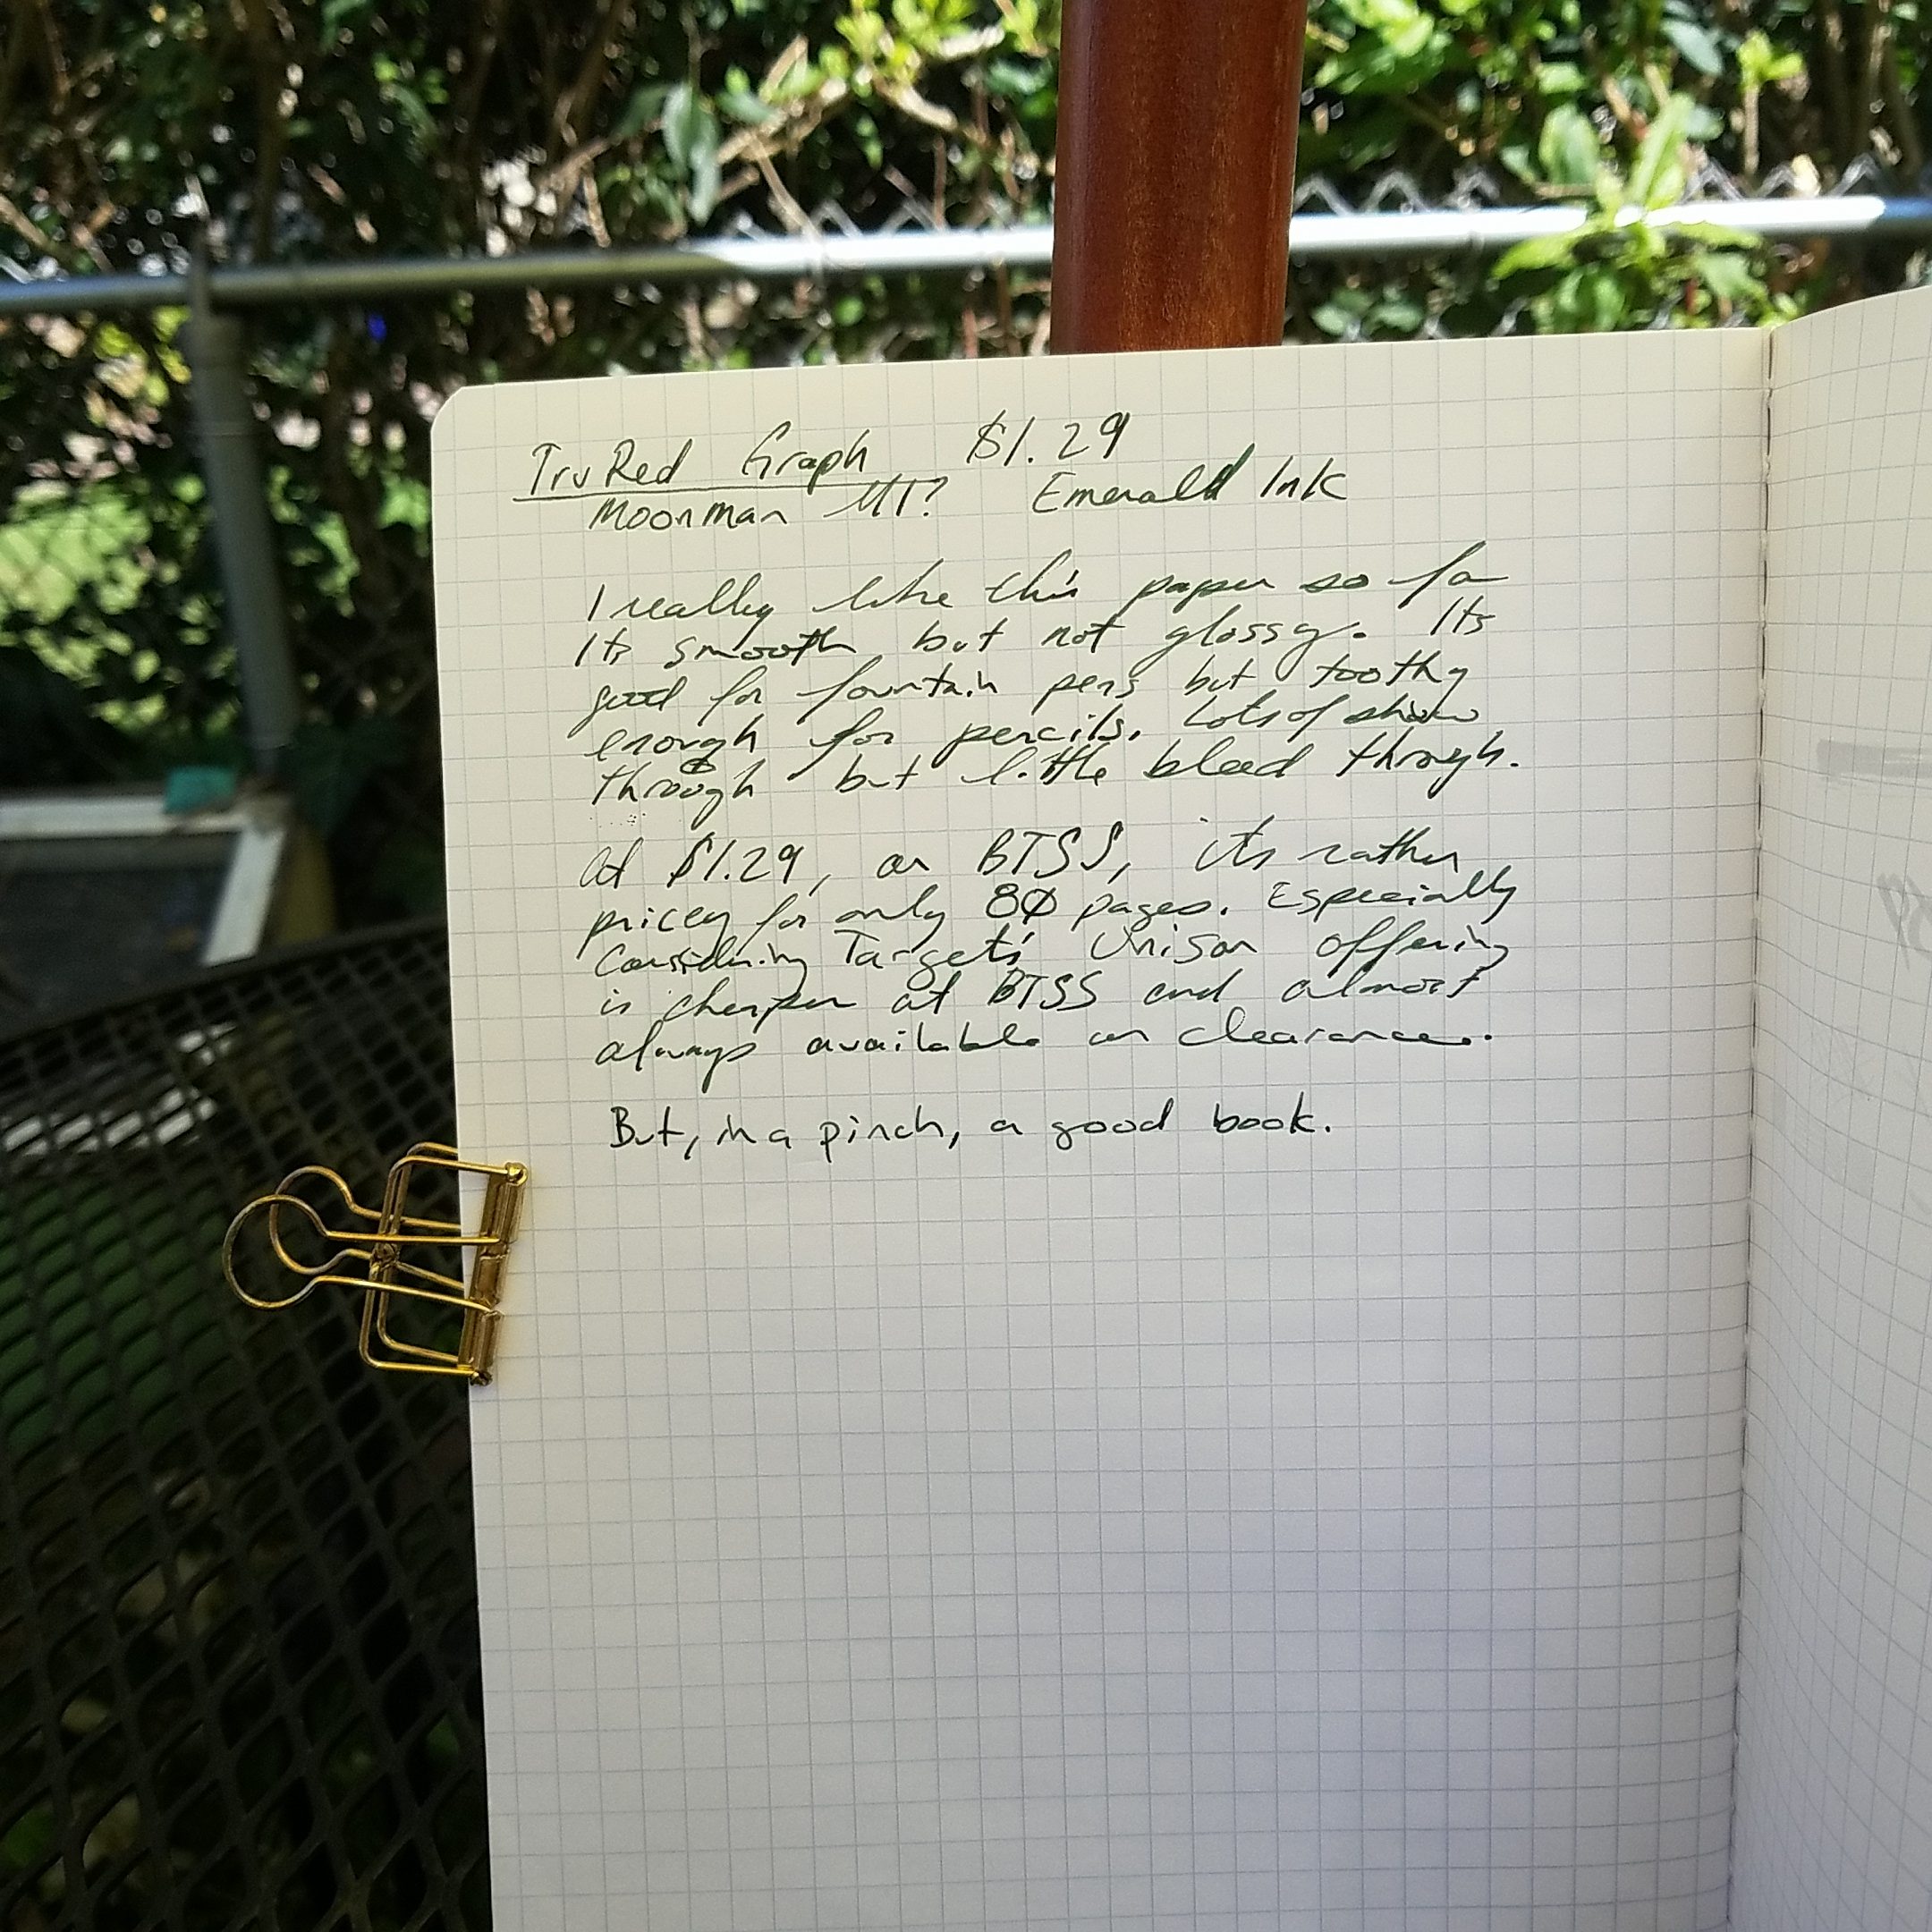 Tru Red Graph $1.29
Moonman M1? Emerald Ink
I really like this paper so far
Its smooth but not glossy. Its
good for fountain pens but toothy
enough for pencils. Lots of show
through but little bleed through.
At $1.29, on BTSS, it's rather
pricey for only 80 pages. Especially
Considering Target's Unison offering
is cheaper at BTSS and almost
always available on clearance.
But, in a pinch, a good book.